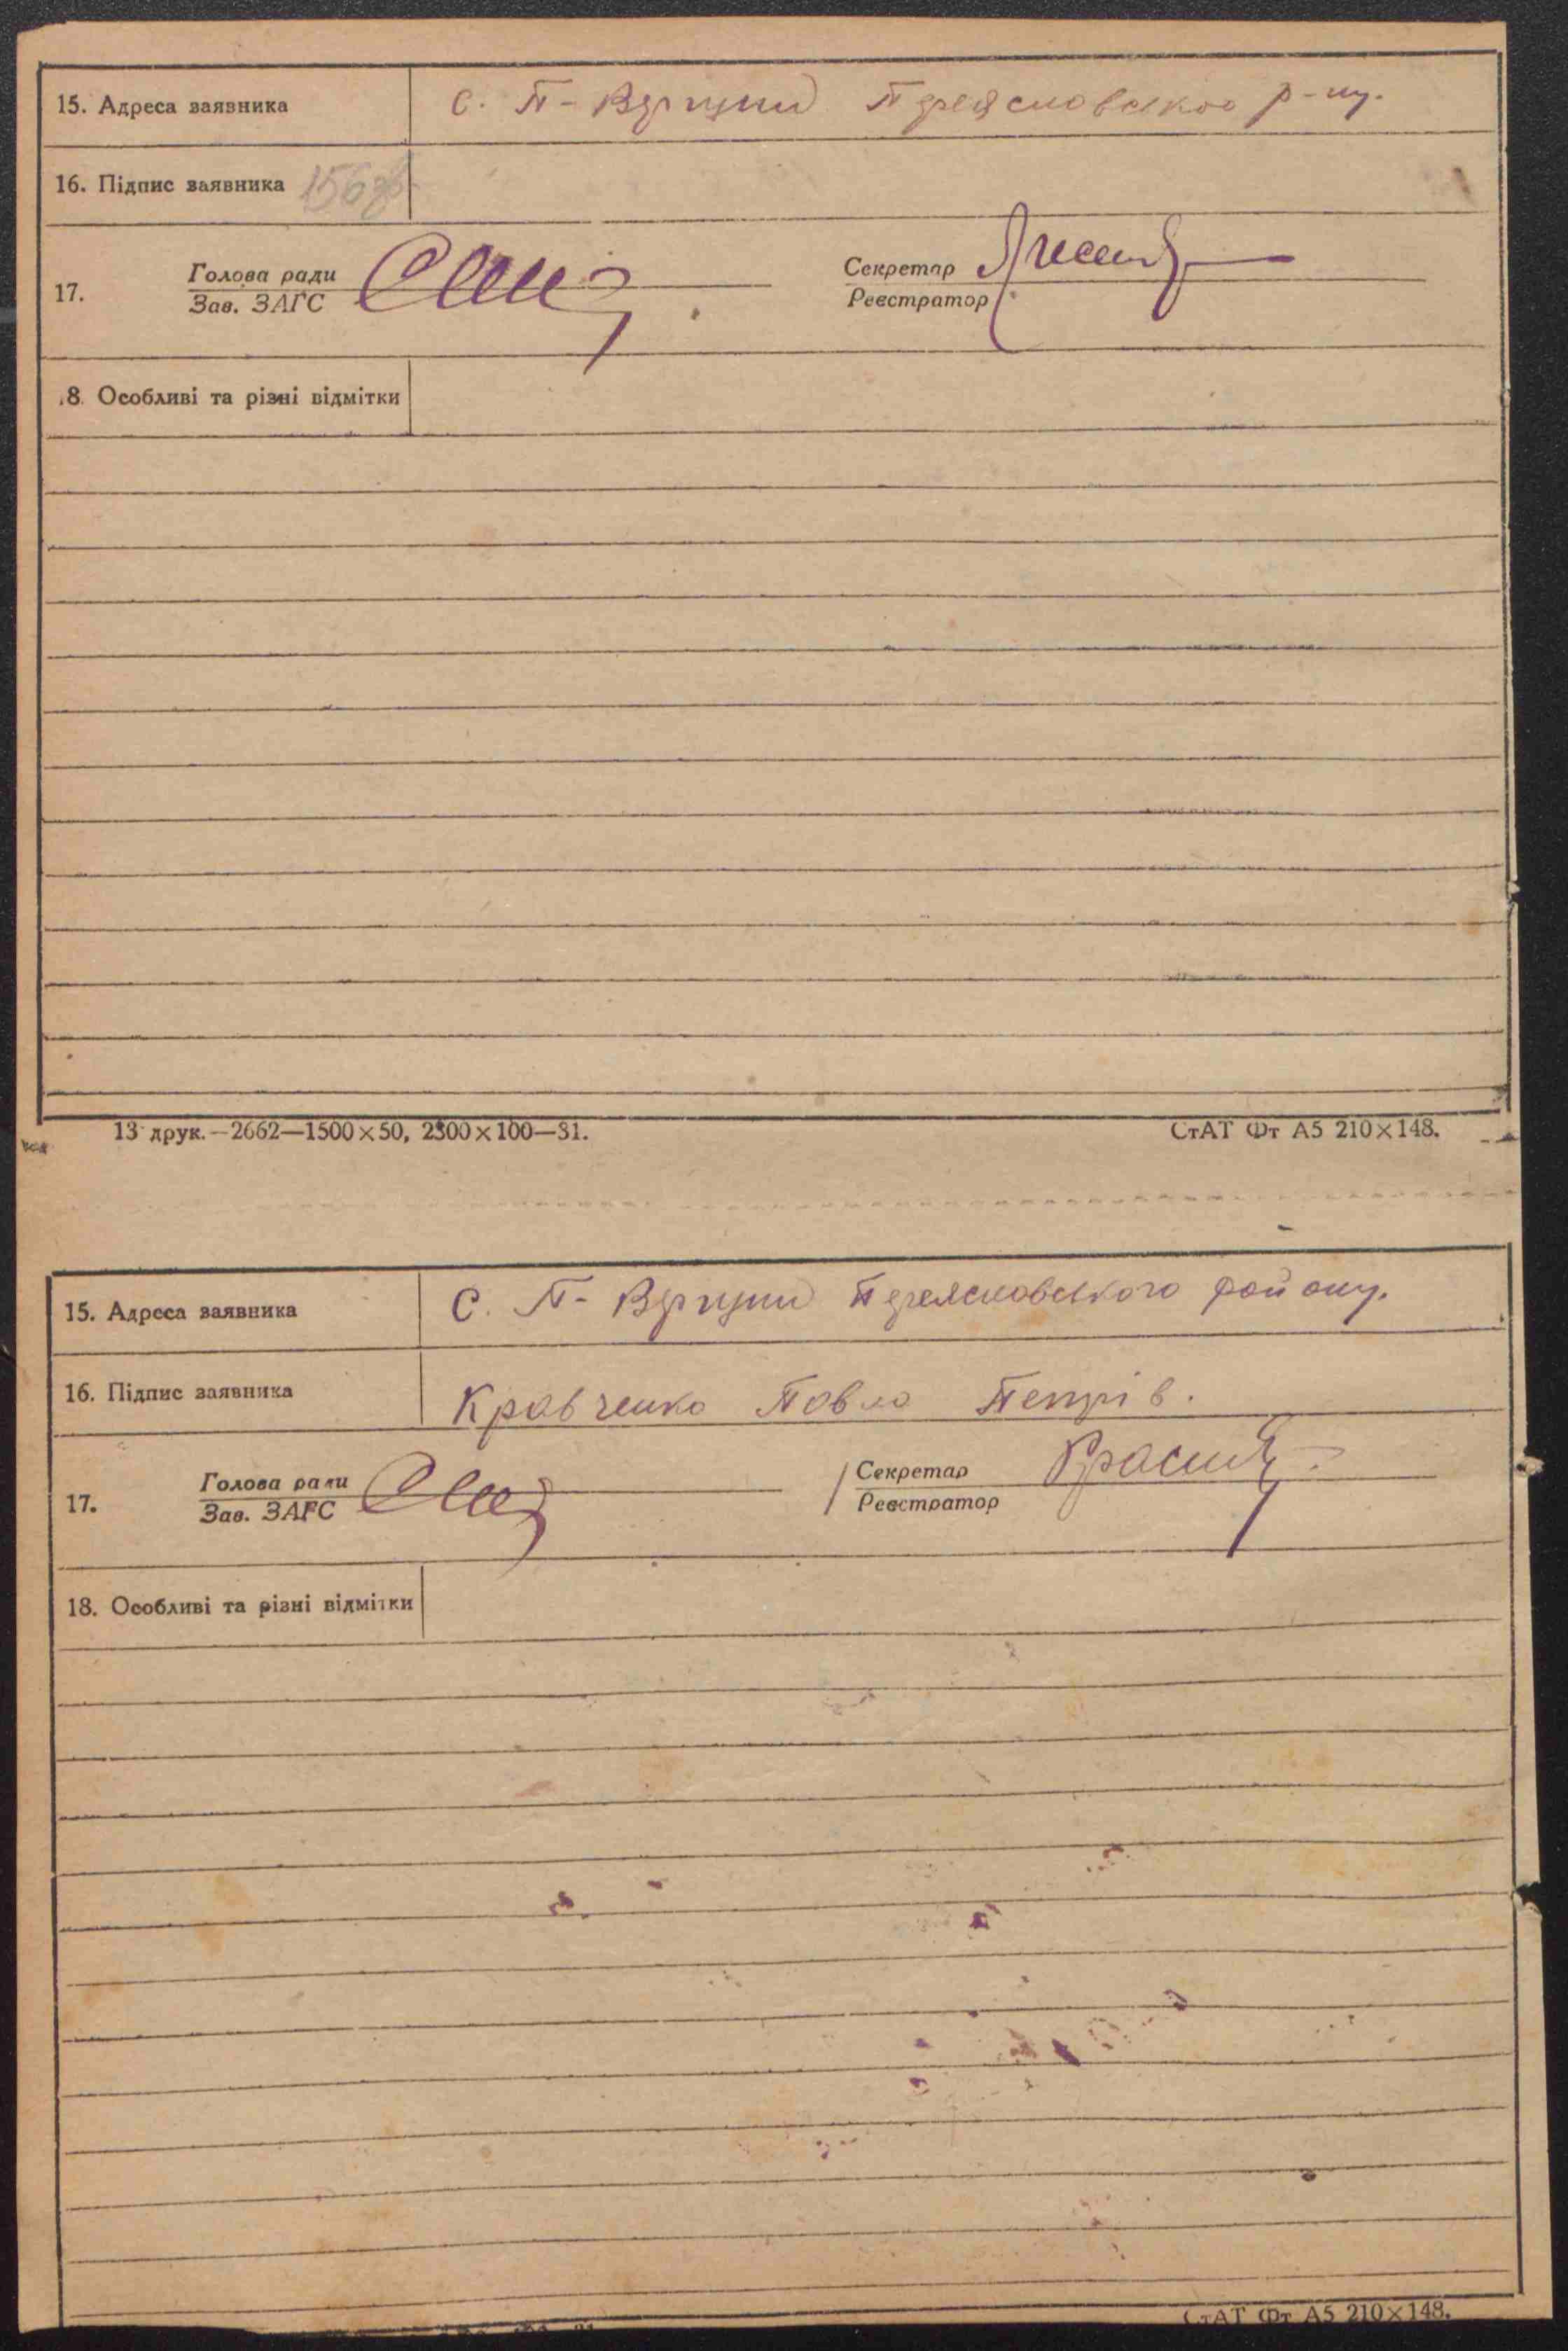 15. Адреса заявника С. П- Вергуни Переясловського р-ну.
16. Підпис заявника 156
17. Голова ради Секретар
Зав. ЗАГС Реєстратор
18. Особливі та різні відмітки
13 друк.—2662—1500×50, 2300×100—31. СтАТ Фт А5 210×148.
15. Адреса заявника С. П- Вергуни Переясловського району.
16. Підпис заявника Кравченко Павло Петрів.
17. Голова ради Секретар
Зав. ЗАГС Реєстратор
18. Особливі та різні відмітки
СтАТ Фт А5 210×148.